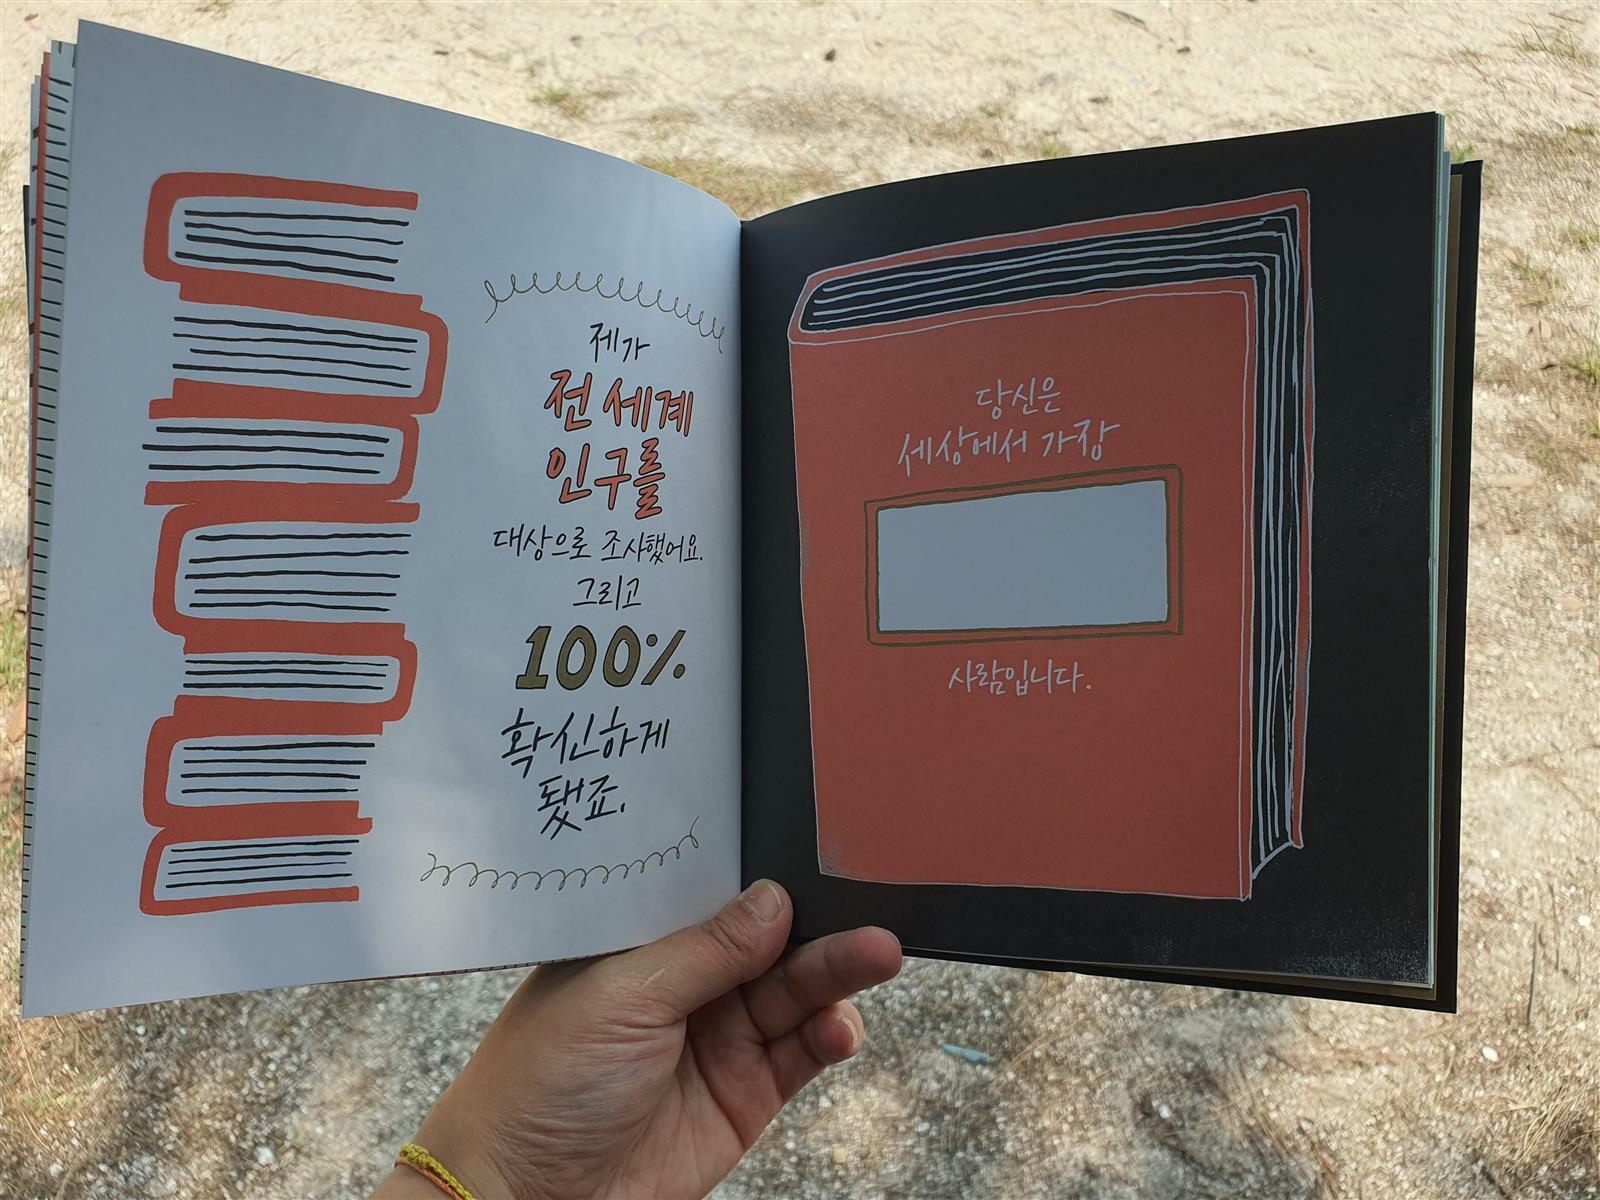 제가
전 세계
인구를
대상으로 조사했어요.
그리고
100%
확신하게
됐죠.
당신은
세상에서 가장
사람입니다.